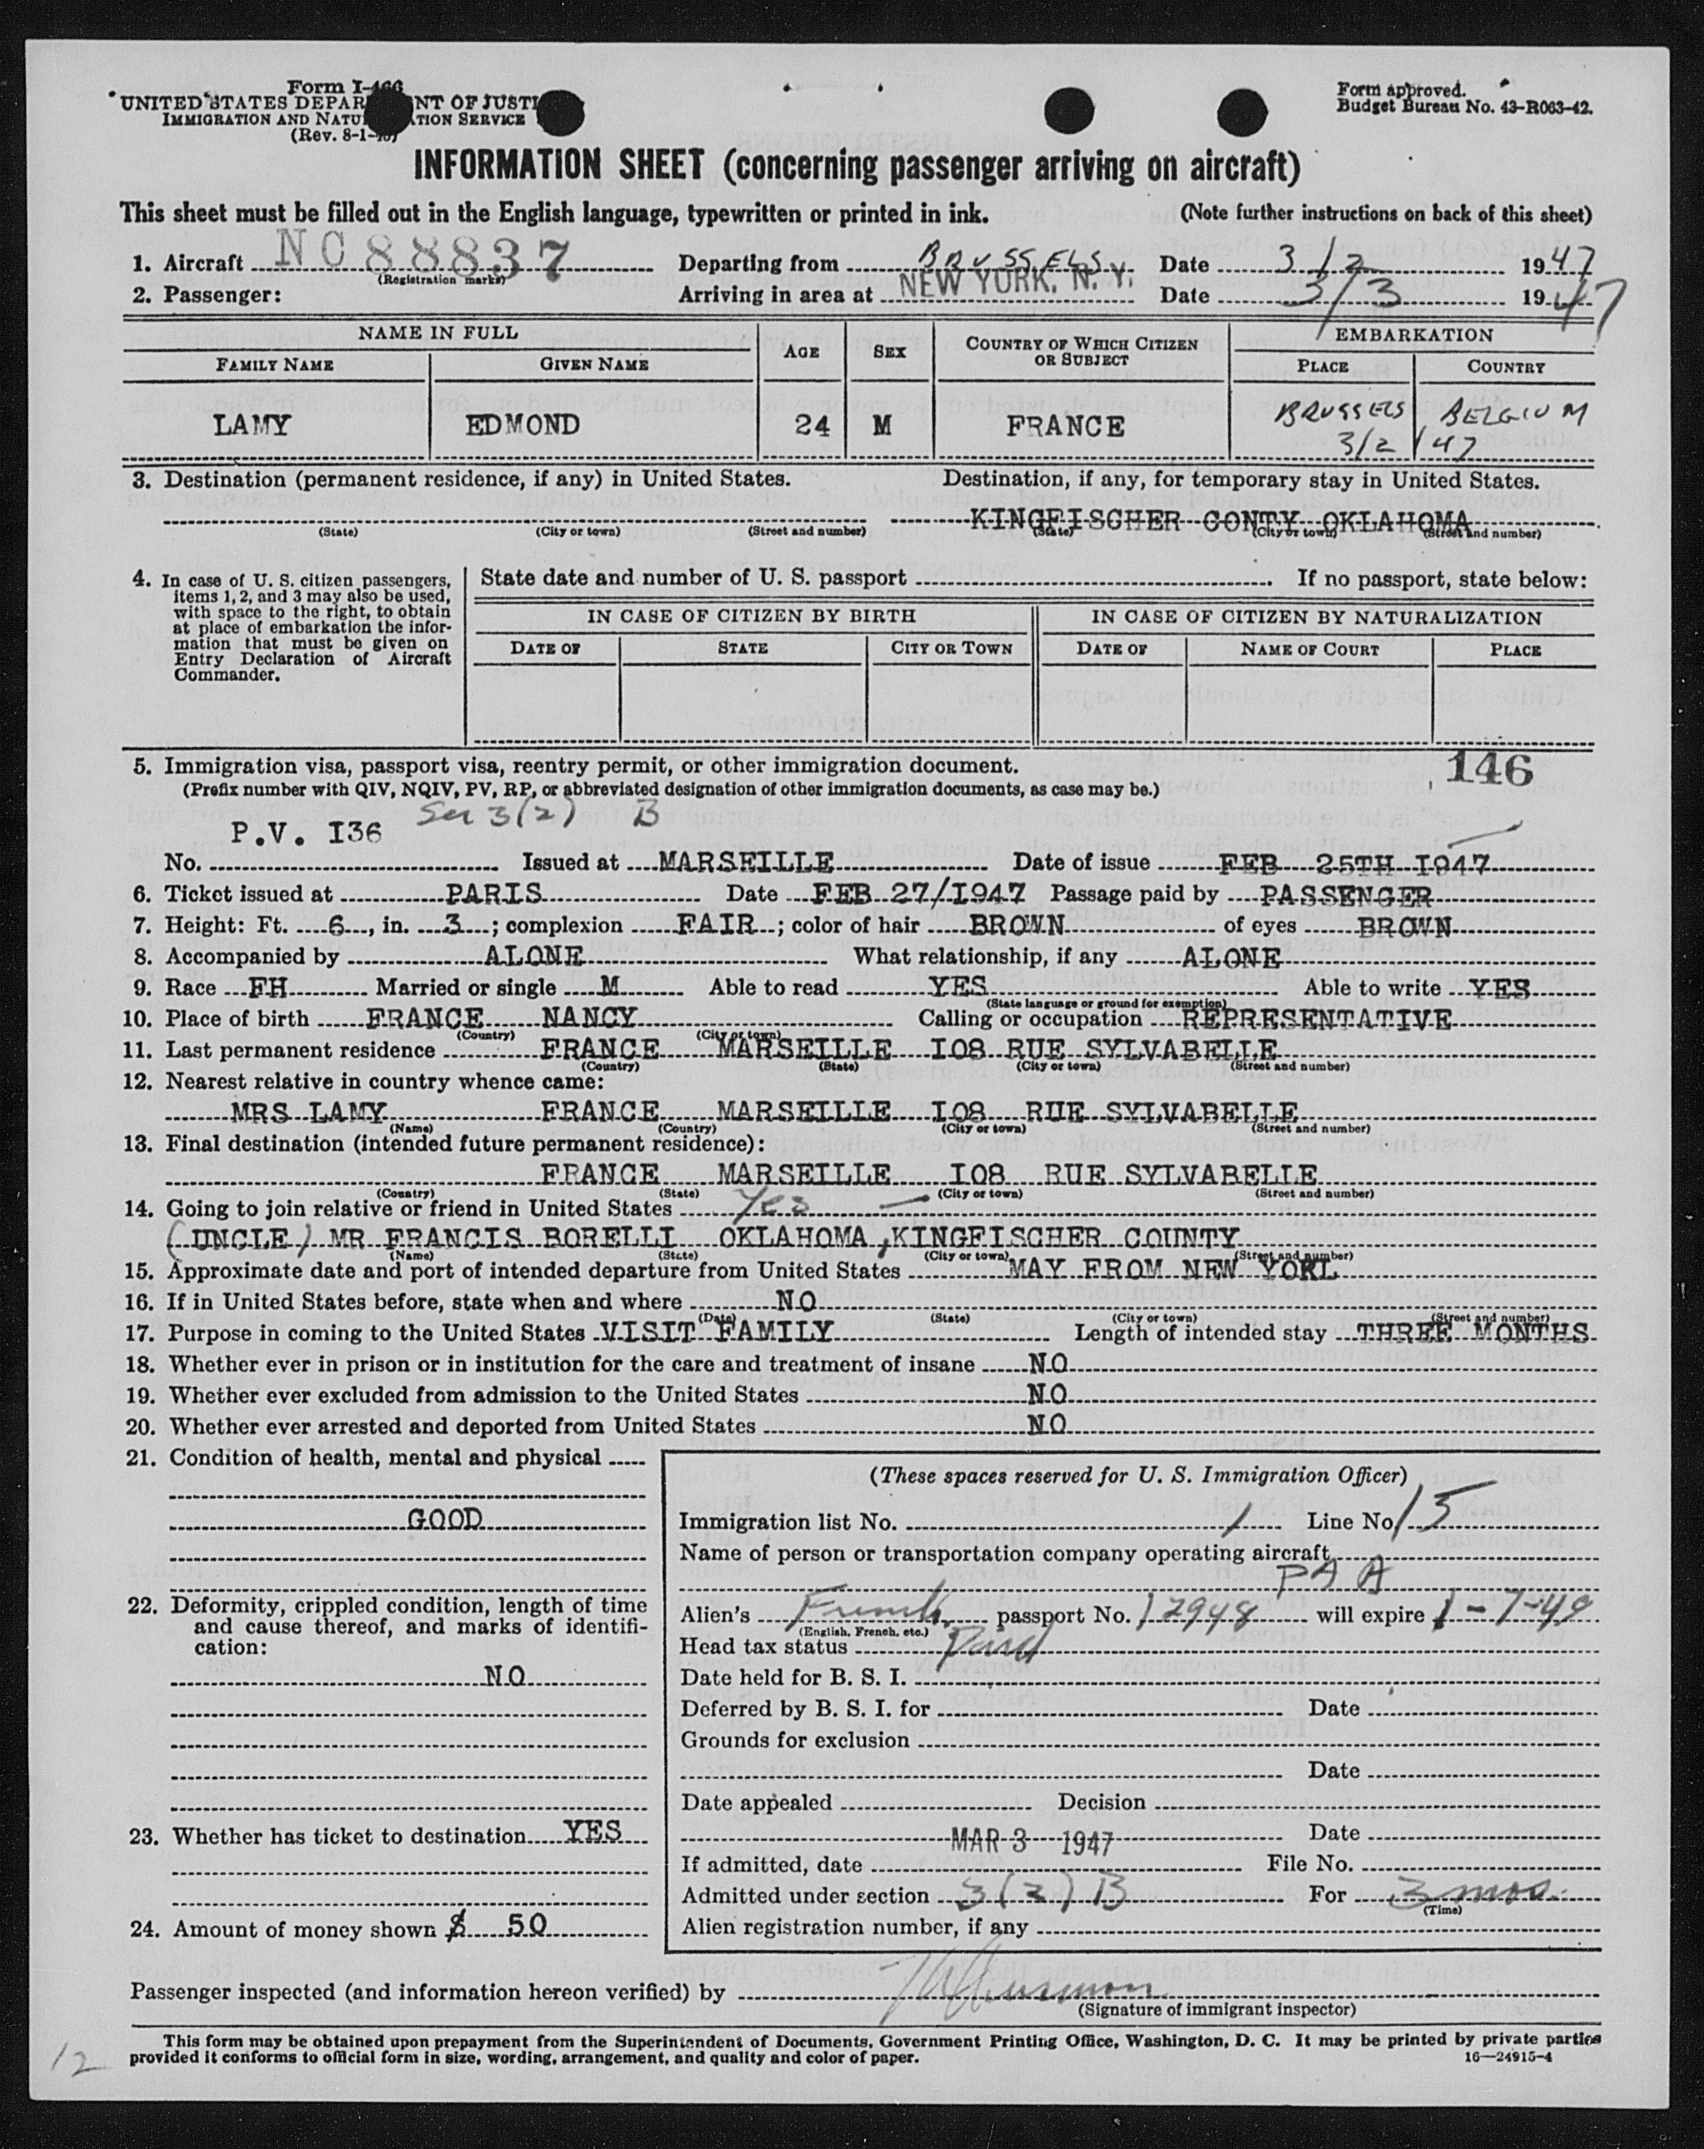 Form I-466
UNITED STATES DEPARTMENT OF JUSTICE
IMMIGRATION AND NATURALIZATION SERVICE
(Rev. 8-1-
Form approved.
Budget Bureau No. 43-R063-42.
INFORMATION SHEET (concerning passenger arriving on aircraft)
This sheet must be filled out in the English language, typewritten or printed in ink. (Note further instructions on back of this sheet)
1. Aircraft NC88837 Departing from BRUSSELS Date 3/2 1947
(Registration marks)
2. Passenger: Arriving in area at NEW YORK, N. Y. Date 3/3 1947
NAME IN FULL AGE SEX COUNTRY OF WHICH CITIZEN OR SUBJECT EMBARKATION
FAMILY NAME GIVEN NAME PLACE COUNTRY
LAMY EDMOND 24 M FRANCE BRUSSELS BELGIUM
3/2/47
3. Destination (permanent residence, if any) in United States. Destination, if any, for temporary stay in United States.
KINGFISCHER CONTY OKLAHOMA
(State) (City or town) (Street and number) (State) (City or town) (Street and number)
4. In case of U. S. citizen passengers, items 1, 2, and 3 may also be used, with space to the right, to obtain at place of embarkation the information that must be given on Entry Declaration of Aircraft Commander.
State date and number of U. S. passport If no passport, state below:
IN CASE OF CITIZEN BY BIRTH IN CASE OF CITIZEN BY NATURALIZATION
DATE OF STATE CITY OR TOWN DATE OF NAME OF COURT PLACE
5. Immigration visa, passport visa, reentry permit, or other immigration document. 146
(Prefix number with QIV, NQIV, PV, RP, or abbreviated designation of other immigration documents, as case may be.)
P.V. I36 Sec 3(2) B
No. Issued at MARSEILLE Date of issue FEB 25TH I947
6. Ticket issued at PARIS Date FEB 27/I947 Passage paid by PASSENGER
7. Height: Ft. 6, in. 3; complexion FAIR; color of hair BROWN of eyes BROWN
8. Accompanied by ALONE What relationship, if any ALONE
9. Race FH Married or single M Able to read YES Able to write YES
(State language or ground for exemption)
10. Place of birth FRANCE NANCY Calling or occupation REPRESENTATIVE
(Country) (City or town)
11. Last permanent residence FRANCE MARSEILLE I08 RUE SYLVABELLE
(Country) (State) (City or town) (Street and number)
12. Nearest relative in country whence came:
MRS LAMY FRANCE MARSEILLE I08 RUE SYLVABELLE
(Name) (Country) (City or town) (Street and number)
13. Final destination (intended future permanent residence):
FRANCE MARSEILLE I08 RUE SYLVABELLE
(Country) (State) (City or town) (Street and number)
14. Going to join relative or friend in United States Yes
(UNCLE) MR FRANCIS BORELLI OKLAHOMA, KINGFISCHER COUNTY
(Name) (State) (City or town) (Street and number)
15. Approximate date and port of intended departure from United States MAY FROM NEW YORL
16. If in United States before, state when and where NO
(Date) (State) (City or town) (Street and number)
17. Purpose in coming to the United States VISIT FAMILY Length of intended stay THREE MONTHS
18. Whether ever in prison or in institution for the care and treatment of insane NO
19. Whether ever excluded from admission to the United States NO
20. Whether ever arrested and deported from United States NO
21. Condition of health, mental and physical
GOOD
22. Deformity, crippled condition, length of time and cause thereof, and marks of identification:
NO
23. Whether has ticket to destination YES
24. Amount of money shown $ 50
(These spaces reserved for U. S. Immigration Officer)
Immigration list No. 1 Line No. 15
Name of person or transportation company operating aircraft
PAA
Alien's French passport No. 12948 will expire 1-7-49
(English, French, etc.)
Head tax status Paid
Date held for B. S. I.
Deferred by B. S. I. for Date
Grounds for exclusion
Date
Date appealed Decision
MAR 3 1947 Date
If admitted, date File No.
Admitted under section 3(2) B For 3 mos.
(Time)
Alien registration number, if any
Passenger inspected (and information hereon verified) by
(Signature of immigrant inspector)
This form may be obtained upon prepayment from the Superintendent of Documents, Government Printing Office, Washington, D. C. It may be printed by private parties
provided it conforms to official form in size, wording, arrangement, and quality and color of paper. 16—24915-4
12